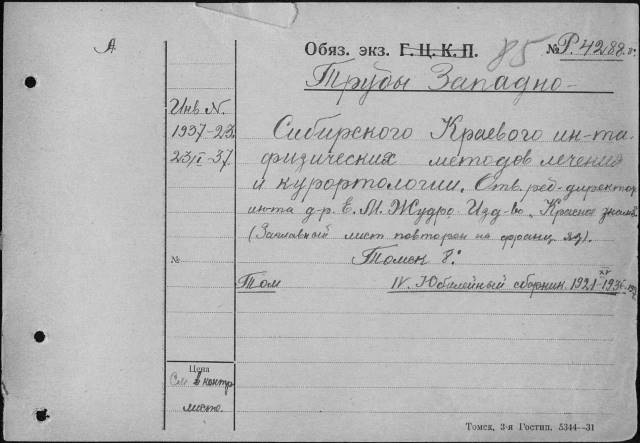 А
Обяз. экз. Г. Ц. К. П. 85 № Р.4288.
Труды Западно-
Инв N.
1937-23.
23/I-37.
Сибирского Краевого ин-та
физических методов лечения
и курортологии. Отв. ред-директор
ин-та д-р. Е. М. Жудро. Изд-во „Красное знамя
(Заглавный лист повторен на франц. яз).
Томск 8°
№
Том IV. Юбилейный сборник. 1921-1936.
XV
Цена
См. в контр
листе.
Томск, 3-я Гостип. 5344—31